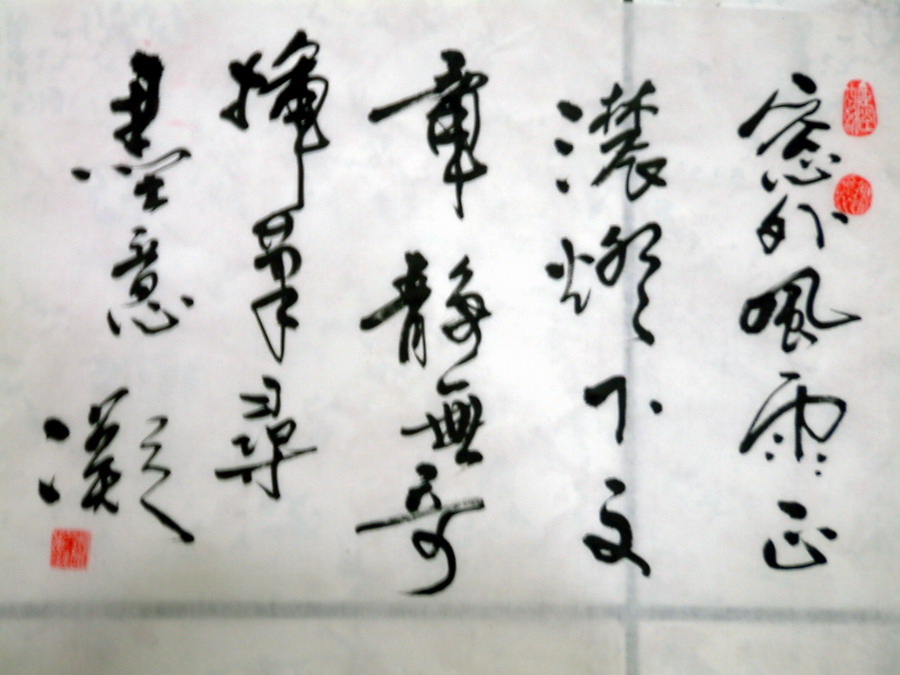 窗外風雨正
濃燈下文
章靜無奇
揮筆尋
墨意凝